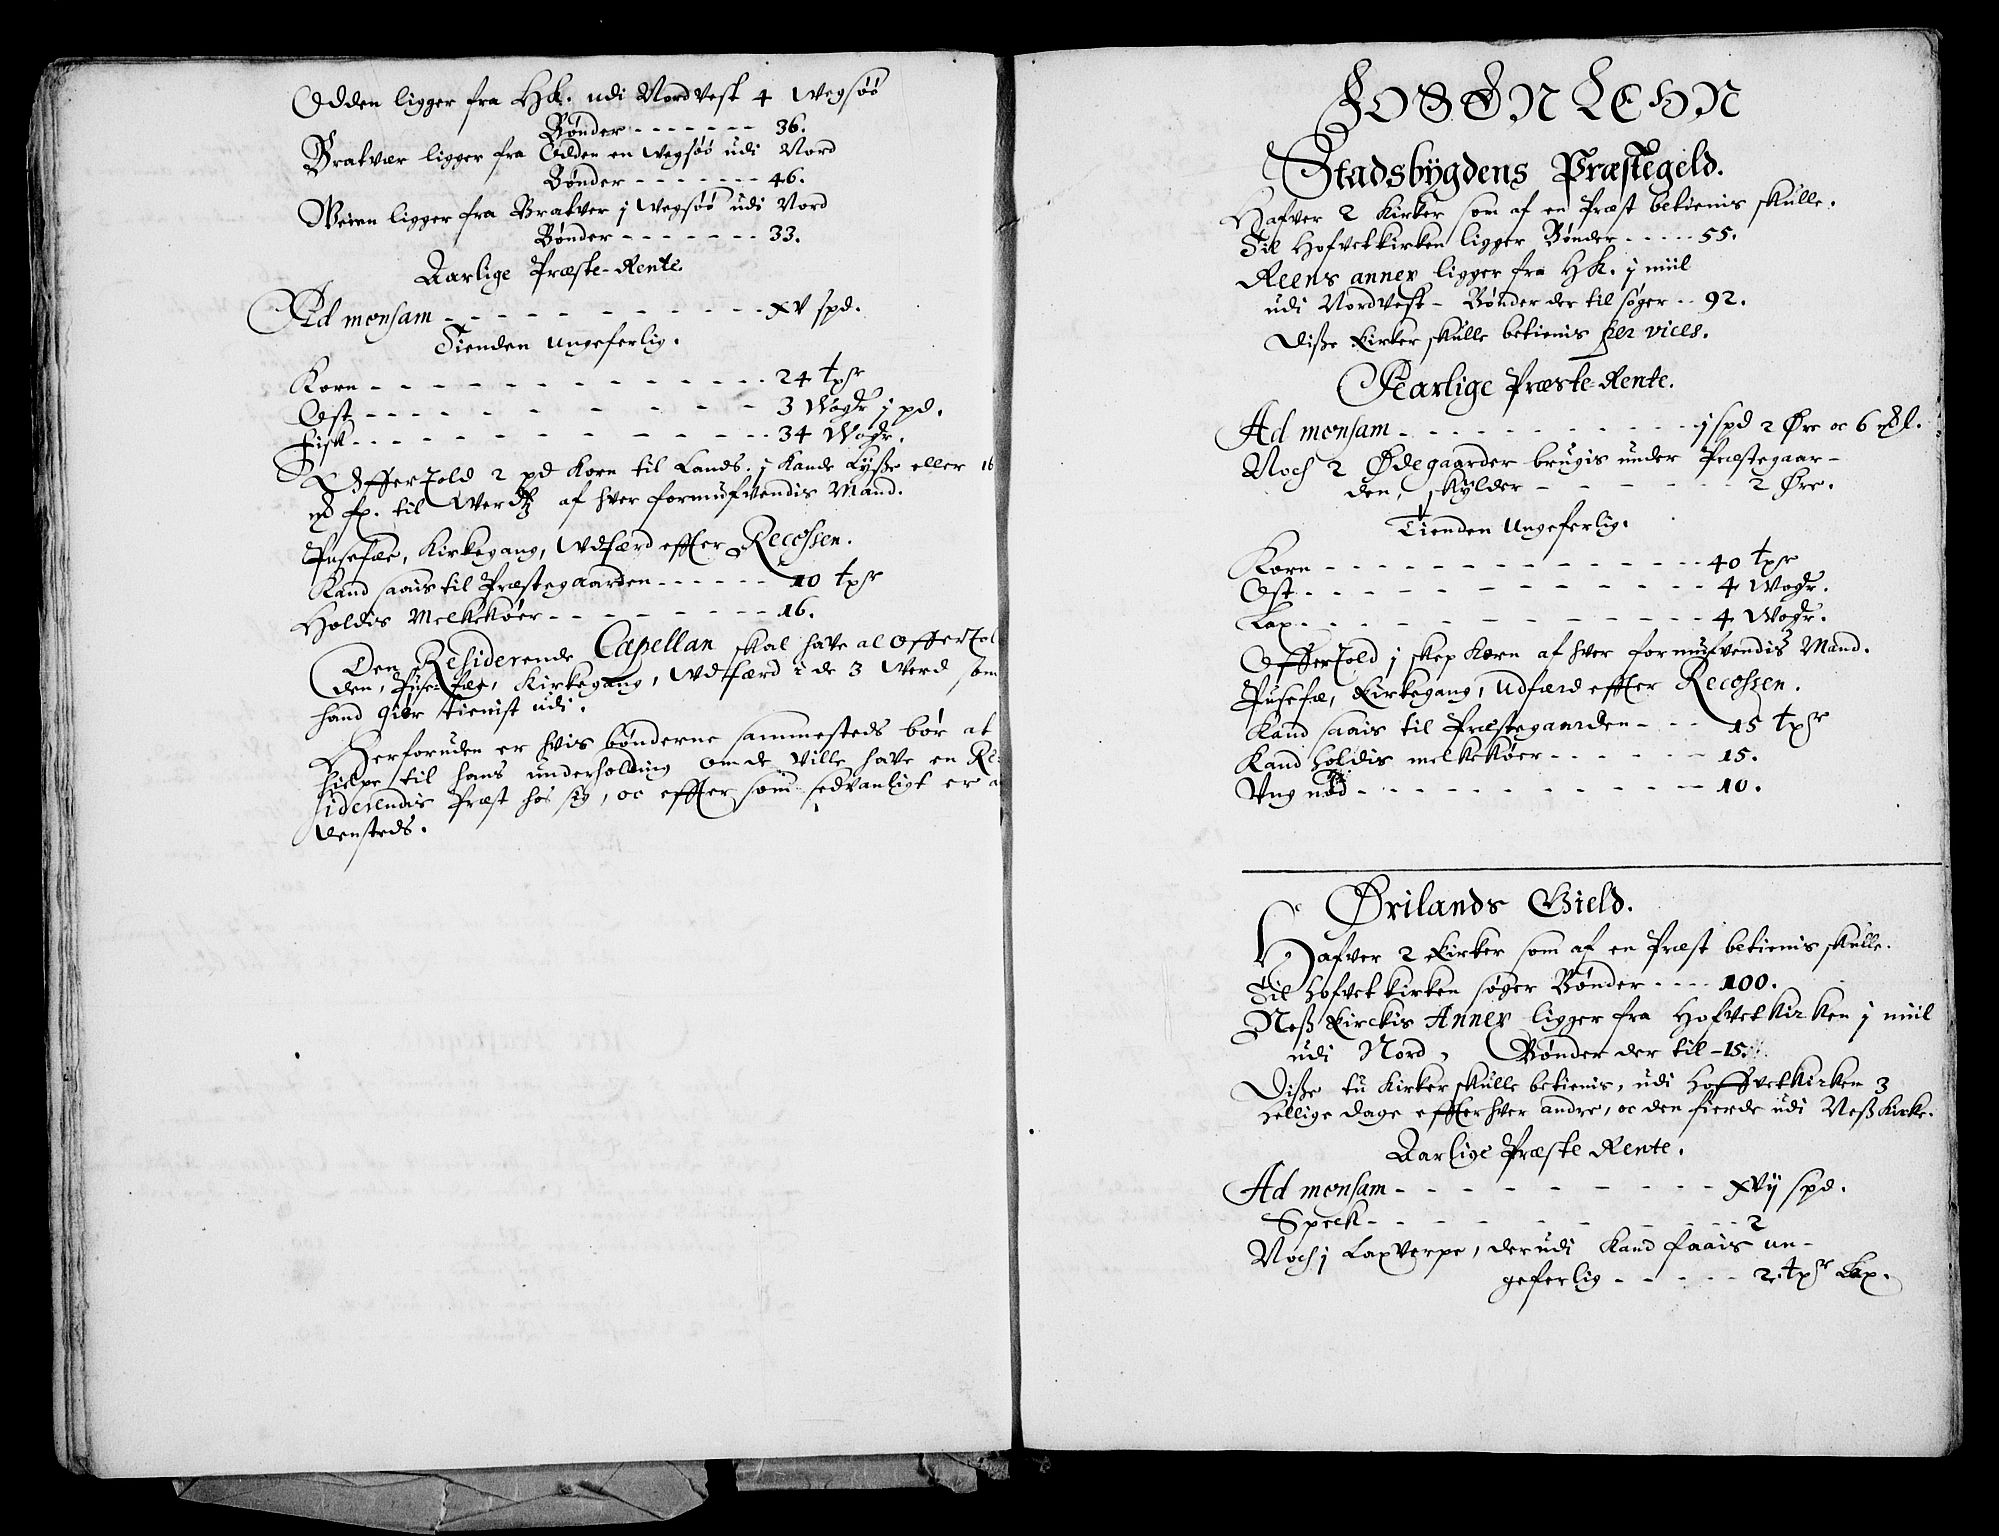 Odden ligger fra Hk. udi Nordvest 4 Wegsøø
Bønder - - - - - - - 36.
Bratvær ligger fra Odden en Wegsøø udi Nord
Bønder - - - - - - - 46.
Weien ligger fra Bratver j Wegsøø udi Nord
Bønder - - - - - - - 33.
Aarlige Præste-Rente.
Ad mensam - - - - - - - - - - XV spd.
Tienden ungeferlig.
Korn - - - - - - - - - - - - 24 tpr
Ost - - - - - - - - - - 3 Wogr j pd.
Fisk - - - - - - - - - - - 34 Wogr.
Offertold 2 pd Korn til Lands. j Kande Lysße eller 16
fx. til Werdtz af hver formufvendis Mand.
Pusefæe, Kirkegang, Wdfærd effter Recessen.
Kand saais til Præstegaarden - - - - - - 10 tpr
Holdis Melkekøer - - - - - - - - 16.
Den Residerende Capellan skal have al Offertol
den, Puse-fæe, Kirkegang, Wdfærd i de 3 Werd som
hand giør tienist udi.
Herforuden er hvis bønderne sammesteds bør at
hielpe til hans underholding om de ville have en Re-
siderendis Præst hos sig, oc effter som sedvanligt er a
densteds.
FOSEN LEHN
Stadsbygdens Præstegeld.
Hafver 2 Kirker som af en Præst betienis skulle.
Til Hofvetkirken ligger Bønder - - - - - 55.
Reens annex ligger fra Hk. j miil
udi Nordvest - Bønder der til søger - - 92.
Disße Kirker skulle betienis per vices.
Aarlige Præste-Rente.
Ad mensam - - - - - - - - - - j spd 2 Øre oc 6 ml.
Noch 2 Ødegaarder brugis under Præstegaar-
den, skylder - - - - - - - 2 Øre.
Tienden Ungeferlig.
Korn - - - - - - - - - - - - - 40 tpr
Ost - - - - - - - - - - - - 4 Wogr.
Lax - - - - - - - - - - - - 4 Wogr.
Offertold j skep Korn af hver formufvendis Mand.
Pusefæ, Kirkegang, Udfærd effter Recessen.
Kand saais til Præstegaarden - - - 15 tpr
Kand holdis melkekøer - - - - - - 15.
Ung nød - - - - - - - - - - - - 10.
Ørilands Gield.
Hafver 2 Kirker som af en Præst betienis skulle.
Til Hofvetkirken søger Bønder - - - - 100.
Neß Kirckis Annex ligger fra Hofvetkirken j miil
udi Nord, Bønder der til - 15.
Disße tu Kirker skulle betienis, udi Hoffvetkirken 3
hellige dage effter hver andre, oc den fierde udi Neß Kirke.
Aarlige Præste Rente.
Ad mensam - - - - - - - - - XVij spd.
Speck - - - - - - - - - - 2
Noch j Laxverpe, der udi Kand faais un-
geferlig - - - - - 2. tpr Lax.